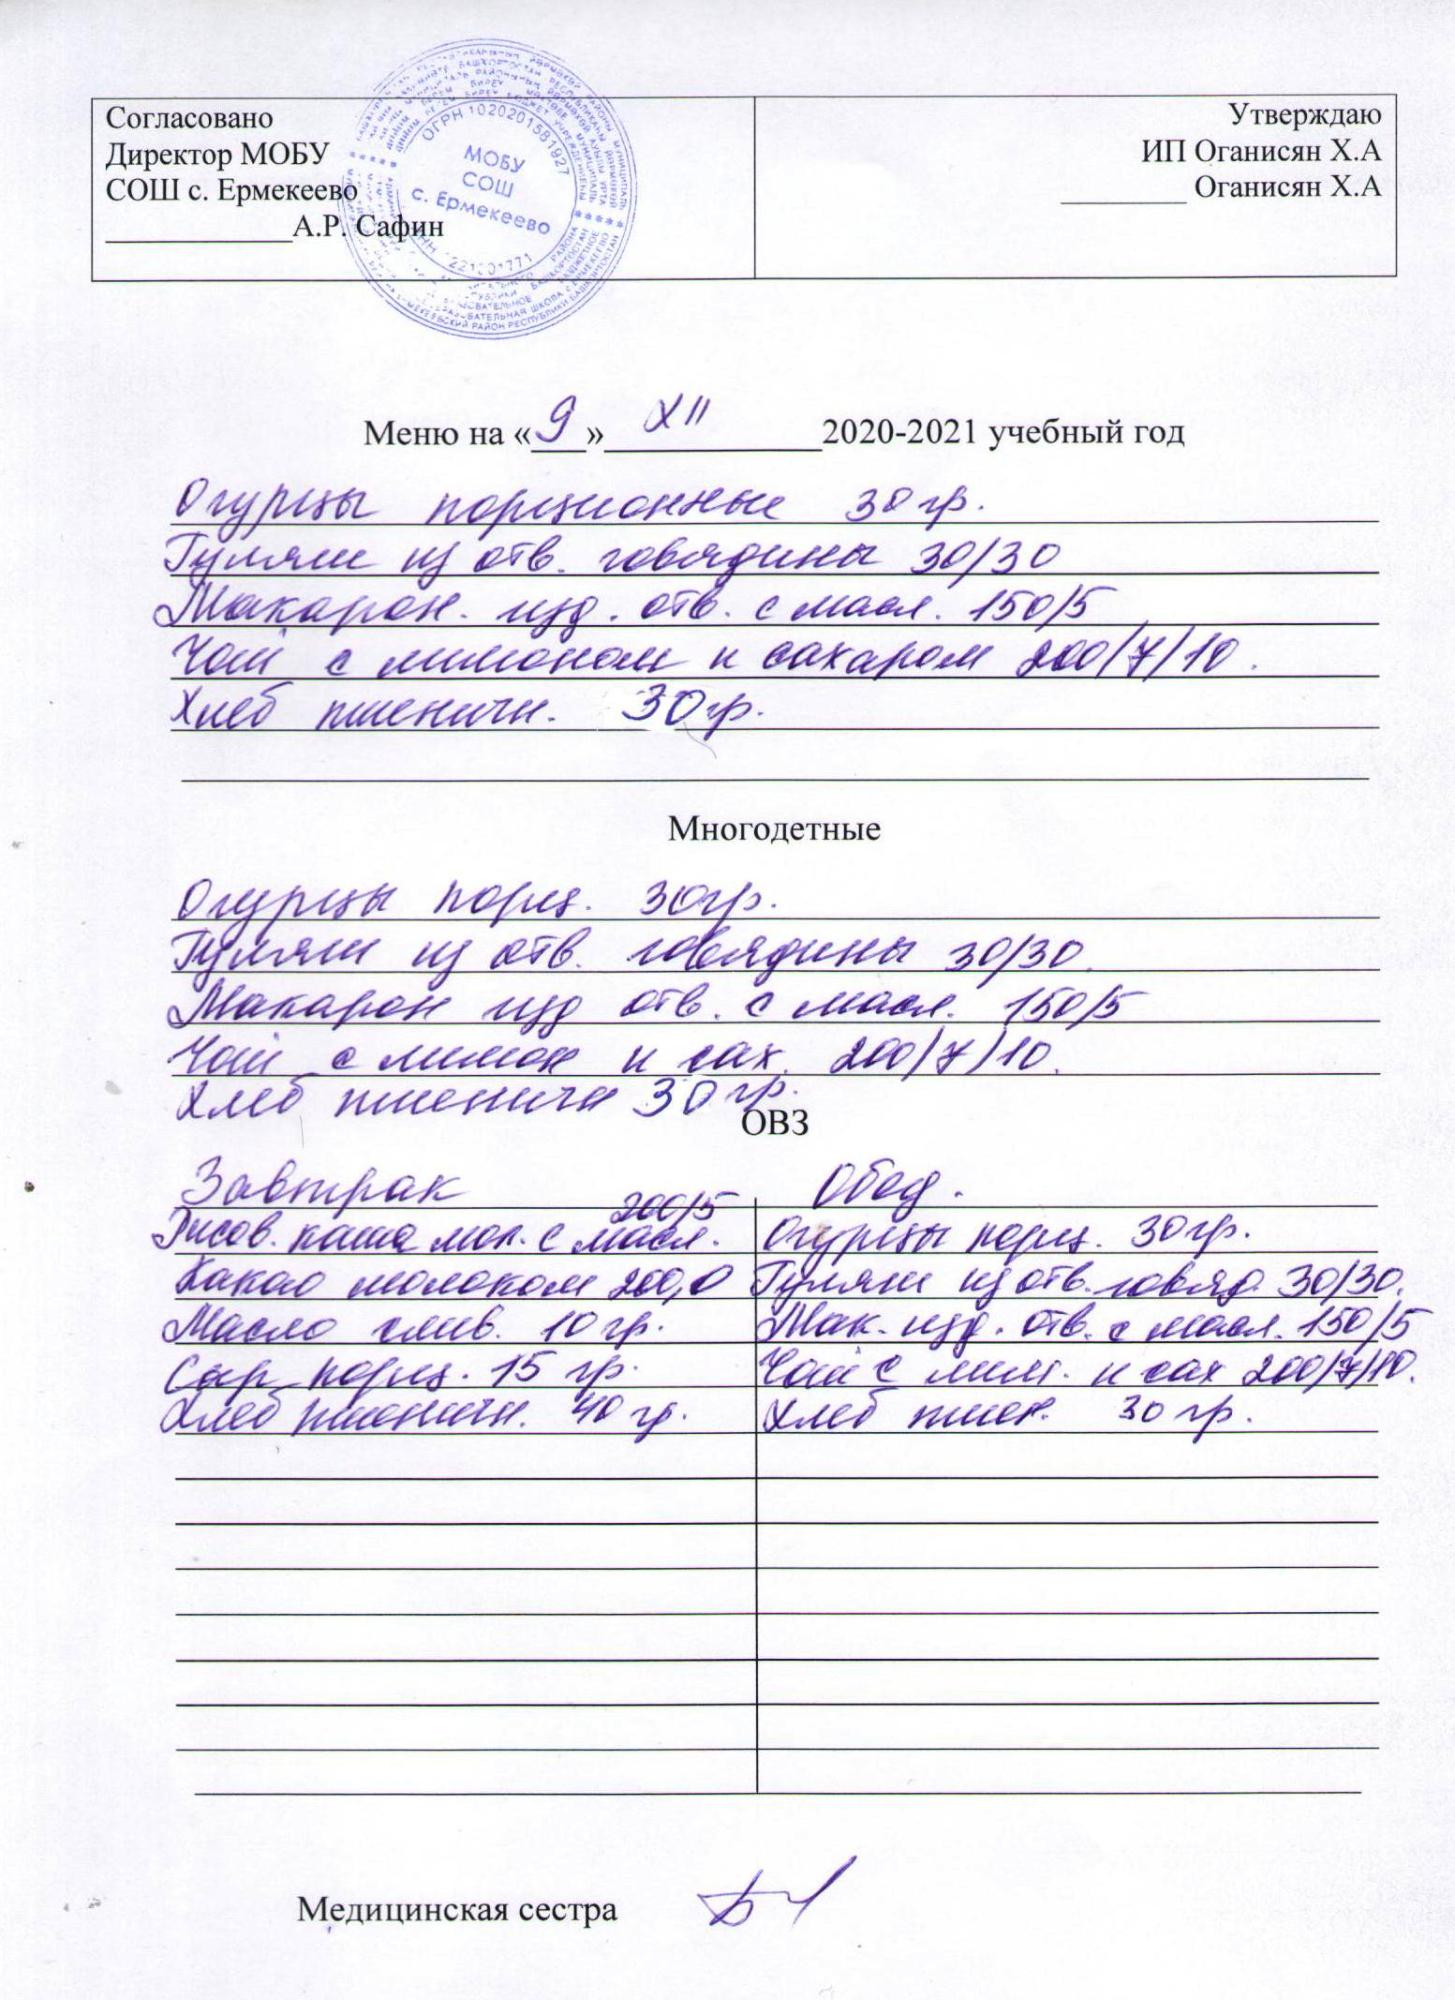 Согласовано
Директор МОБУ
СОШ с. Ермекеево
____________А.Р. Сафин
Утверждаю
ИП Оганисян Х.А
________ Оганисян Х.А
ОГРН 1020201581927
МОБУ
СОШ
с. Ермекеево
Меню на «9» XII 2020-2021 учебный год
Огурцы порционные 30 гр.
Гуляш из отв. говядины 30/30
Макарон. изд. отв. с масл. 150/5
Чай с лимоном и сахаром 200/7/10.
Хлеб пшеничн. 30 гр.
Многодетные
Огурцы порц. 30гр.
Гуляш из отв. говядины 30/30.
Макарон изд отв. с масл. 150/5
Чай с лимон и сах. 200/7/10.
Хлеб пшеничн 30 гр.
ОВЗ
Завтрак
200/5
Рисов. каша мол. с масл.
Какао молоком 200,0
Масло слив. 10 гр.
Сыр порц. 15 гр.
Хлеб пшеничн. 40 гр.
Обед.
Огурцы порц. 30гр.
Гуляш из отв. говяд. 30/30.
Мак. изд. отв. с масл. 150/5
Чай с лим. и сах 200/7/10.
Хлеб пшен. 30 гр.
Медицинская сестра